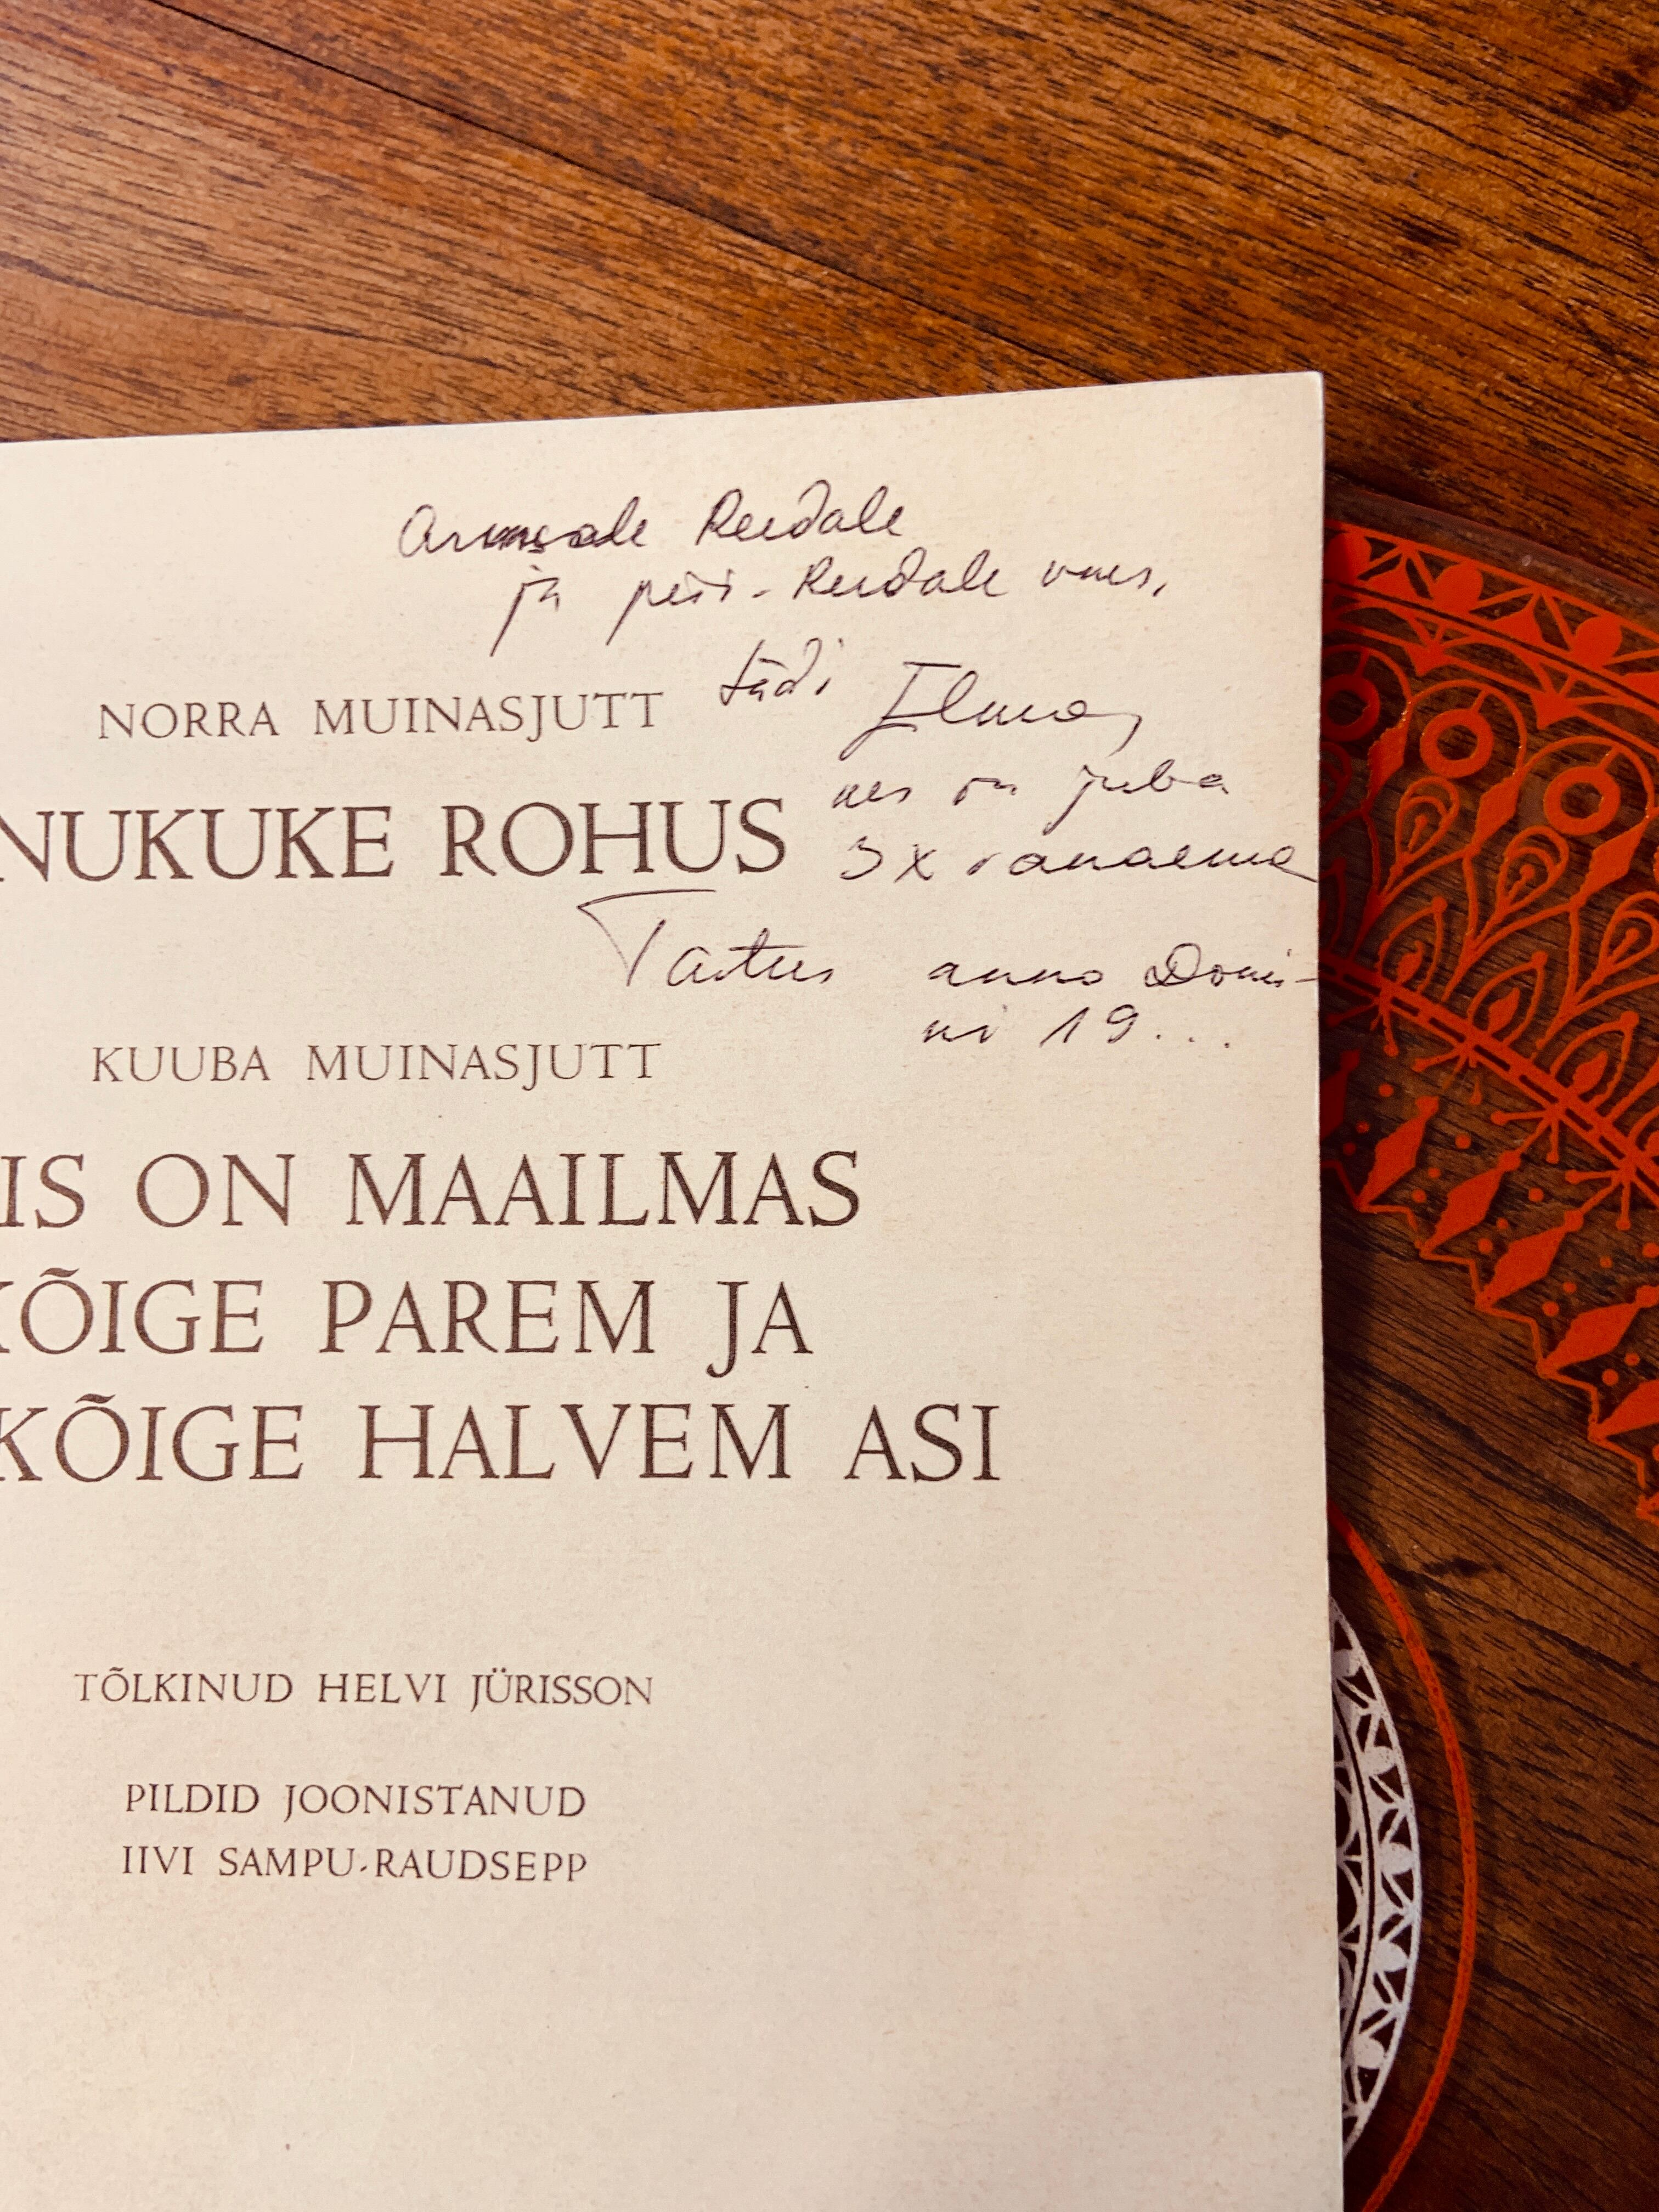 Armsale Reedale
ja pere-Reedale omas,
tädi Ilma,
kes on juba
3x vanaema
Tartus anno Domi-
ni 19...
NORRA MUINASJUTT
NUKUKE ROHUS
KUUBA MUINASJUTT
IS ON MAAILMAS
KÕIGE PAREM JA
KÕIGE HALVEM ASI
TÕLKINUD HELVI JÜRISSON
PILDID JOONISTANUD
IIVI SAMPU-RAUDSEPP